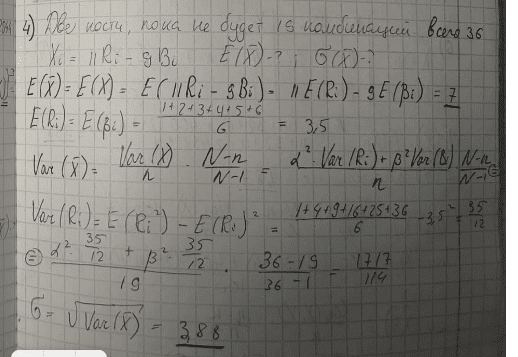 4) Две кости, пока не будет 19 комбинаций всего 36
Xi = 11Ri - 9Bi E(X̄)-? ; б(X̄)-?
E(X̄) = E(X) = E(11Ri - 9Bi) = 11E(Ri) - 9E(Bi) = 7
E(Ri) = E(Bi) = (1+2+3+4+5+6)/6 = 3,5
Var(X̄) = Var(X)/n · (N-n)/(N-1) = (α²·Var(Ri) + β²Var(B))/n (N-n)/(N-1) =
Var(Ri) = E(Ri²) - E(Ri)² = (1+4+9+16+25+36)/6 - 3,5² = 35/12
= (α²·35/12 + β²·35/12)/19 · (36-19)/(36-1) = 1717/114
б = √Var(X̄) = 3,88